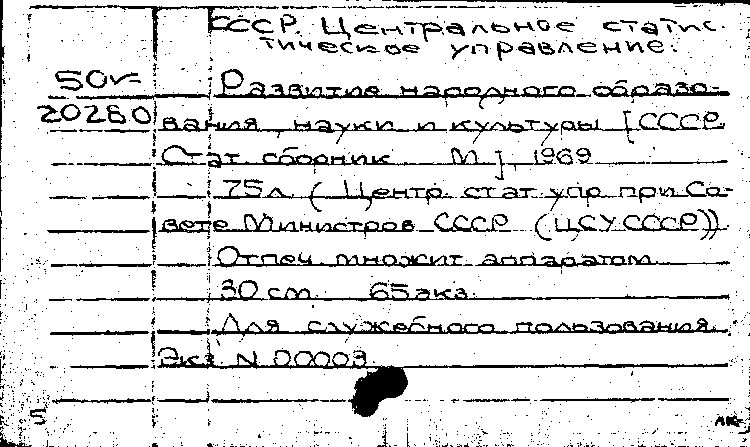 СССР. Центральное статис-
тическое управление.
50
20280
Развитие народного образо-
вания, науки и культуры [СССР.
Стат. сборник. М.], 1969
75л. (Центр. стат. упр. при Со-
вете Министров СССР (ЦСУ СССР))
Отпеч. множит. аппаратом.
30 см. 65 экз.
Для служебного пользования.
Экз. N 00003.